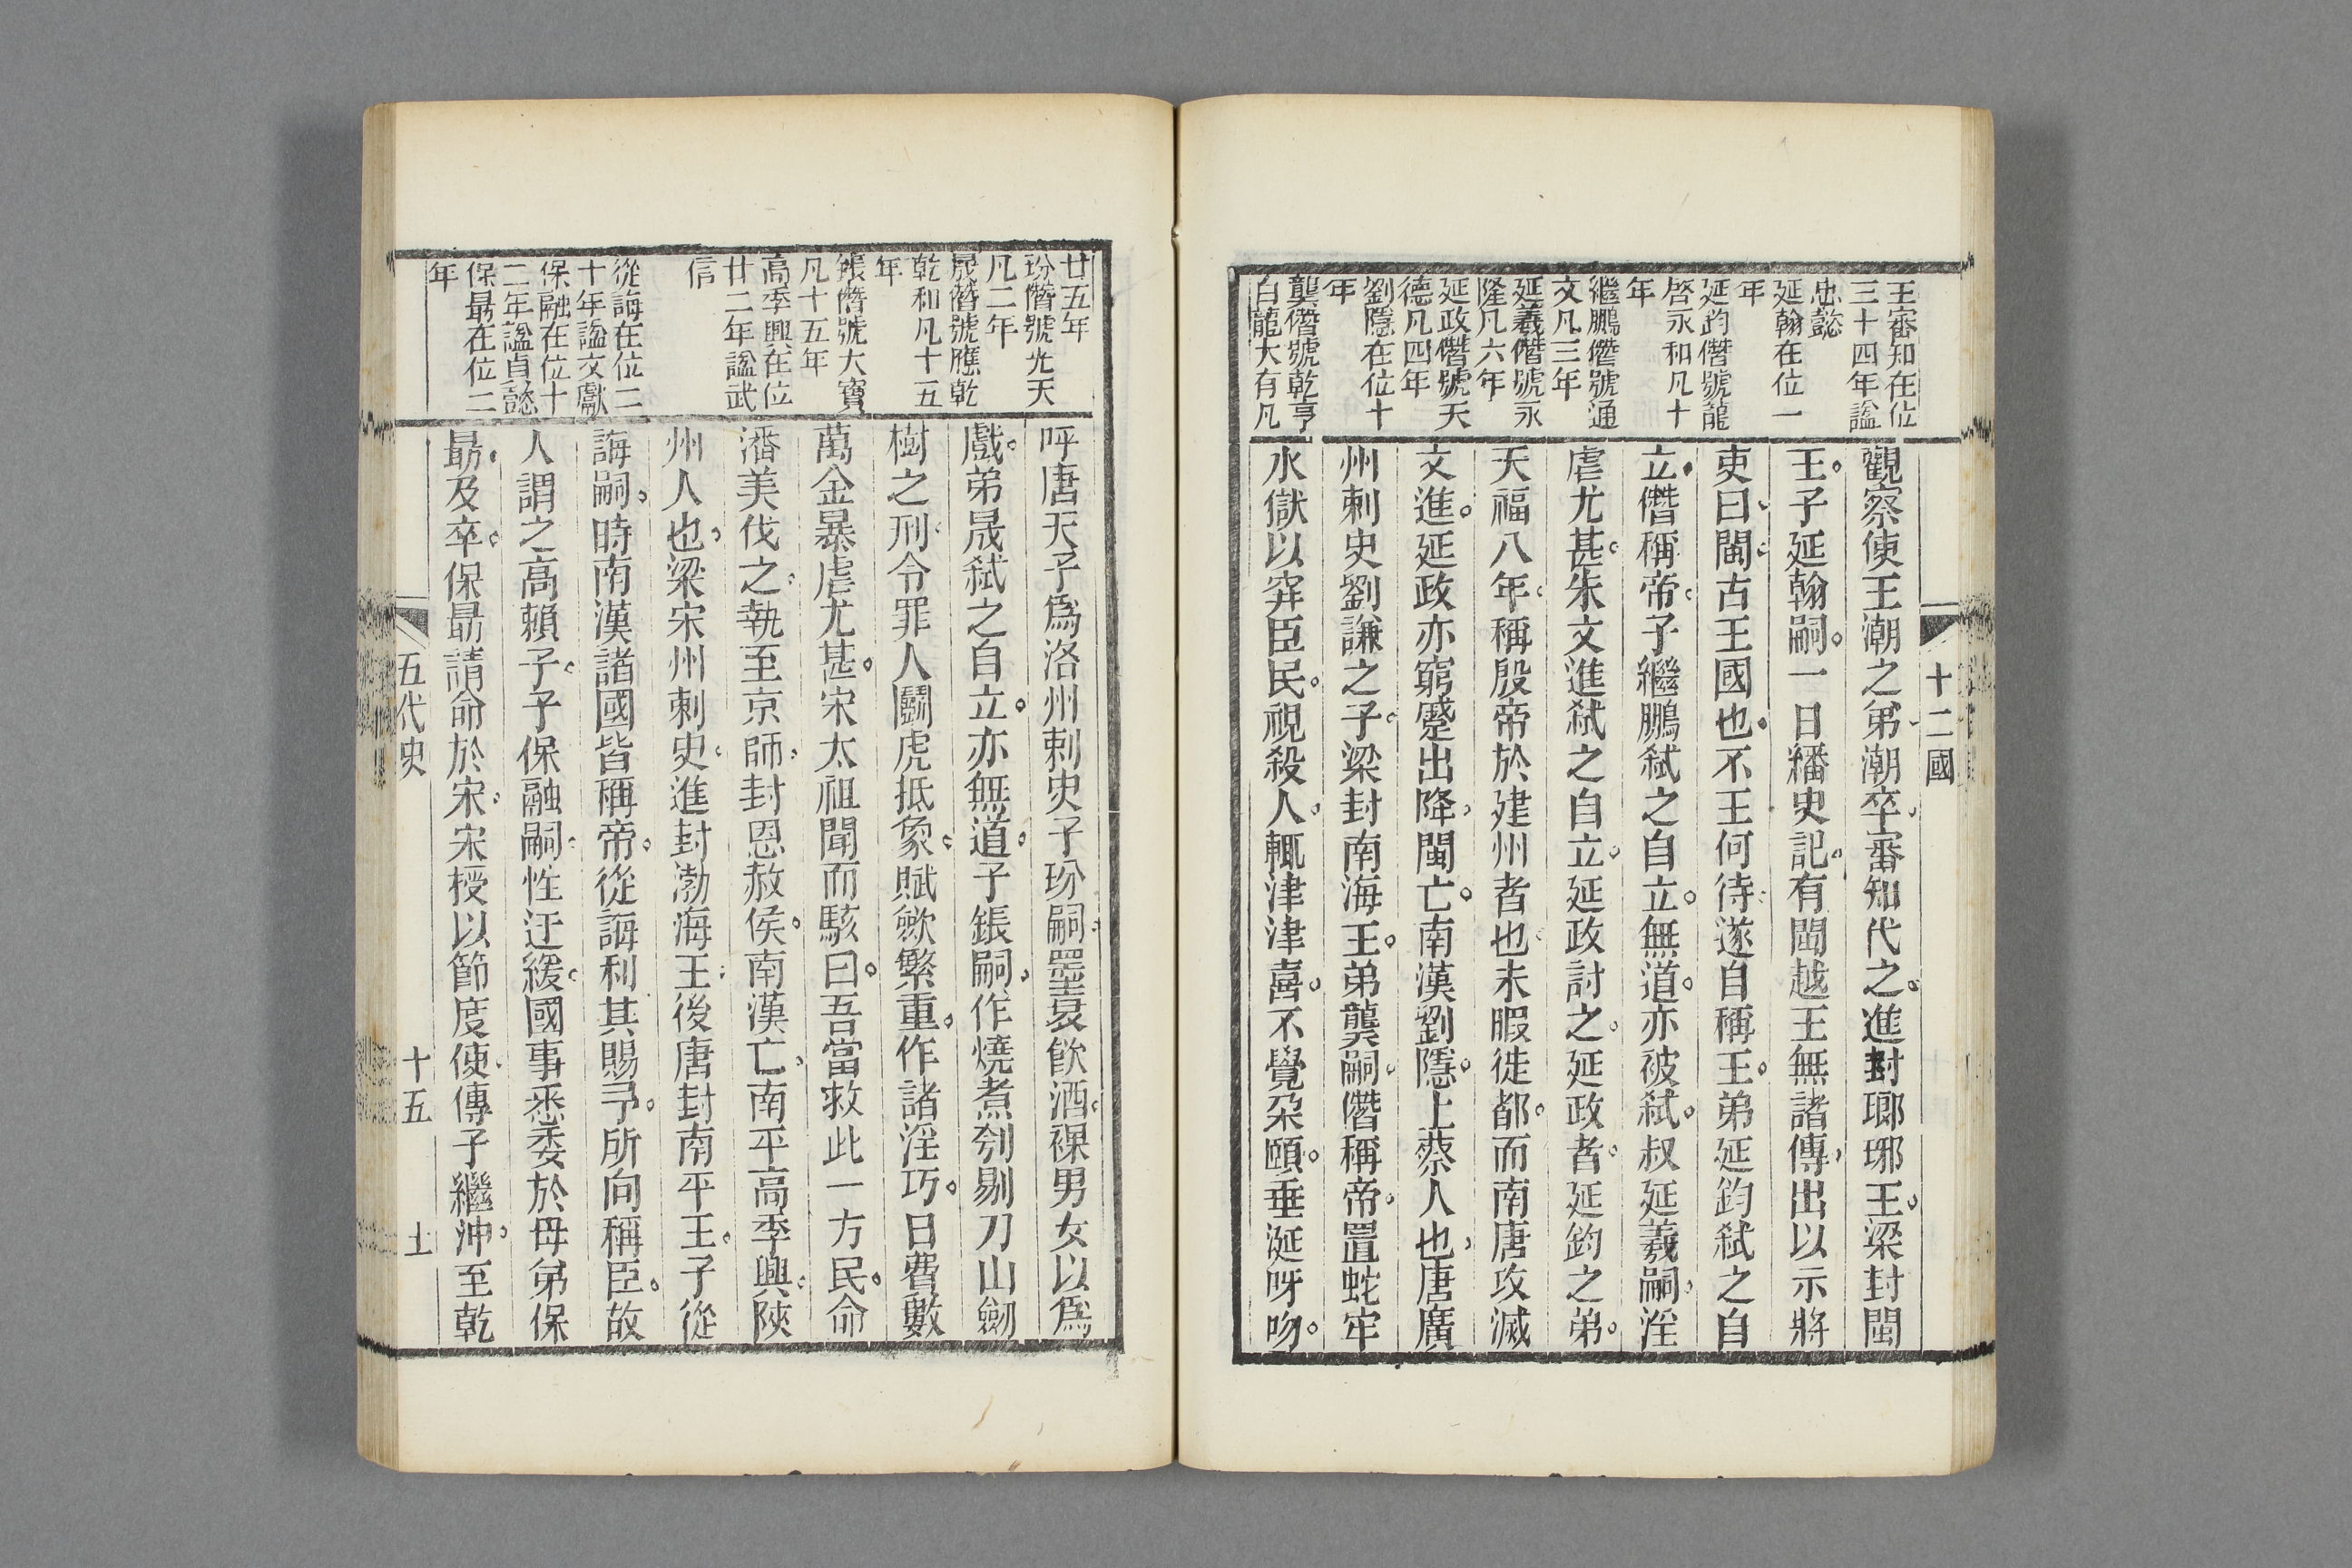 十二國
王審知在位
三十四年諡
忠懿
延翰在位一
年
延鈞僭號龍
啓永和凡十
年
繼鵬僭號通
文凡三年
延羲僭號永
隆凡六年
延政僭號天
德凡四年
劉隱在位十
年
龑僭號乾亨
白龍大有凡
觀察使王潮之弟潮卒審知代之進封瑯琊王梁封閩
王子延翰嗣一日繙史記有閩越王無諸傳出以示將
吏曰閩古王國也不王何待遂自稱王弟延鈞弑之自
立僭稱帝子繼鵬弑之自立無道亦被弑叔延羲嗣淫
虐尤甚朱文進弑之自立延政討之延政者延鈞之弟
天福八年稱殷帝於建州者也未暇徒都而南唐攻滅
文進延政亦窮蹙出降閩亡南漢劉隱上蔡人也唐廣
州刺史劉謙之子梁封南海王弟龑嗣僭稱帝置蛇牢
水獄以穽臣民視殺人輒津津喜不覺朶頤垂涎呀吻
廿五年
玢僭號光天
凡二年
晟僭號應乾
乾和凡十五
年
鋹僭號大寶
凡十五年
高季興在位
廿二年諡武
信
從誨在位二
十年諡文獻
保融在位十
二年諡貞懿
保勗在位二
年
呼唐天子爲洛州刺史子玢嗣墨衰飮酒裸男女以爲
戲弟晟弑之自立亦無道子鋹嗣作燒煮刳剔刀山劒
樹之刑令罪人鬭虎抵象賦斂繁重作諸淫巧日費數
萬金暴虐尤甚宋太祖聞而駭曰吾當救此一方民命
潘美伐之執至京師封恩赦侯南漢亡南平高季興陝
州人也梁宋州刺史進封渤海王後唐封南平王子從
誨嗣時南漢諸國皆稱帝從誨利其賜予所向稱臣故
人謂之高賴子子保融嗣性迂緩國事悉委於母弟保
勗及卒保勗請命於宋宋授以節度使傳子繼沖至乾
五代史
十五
土